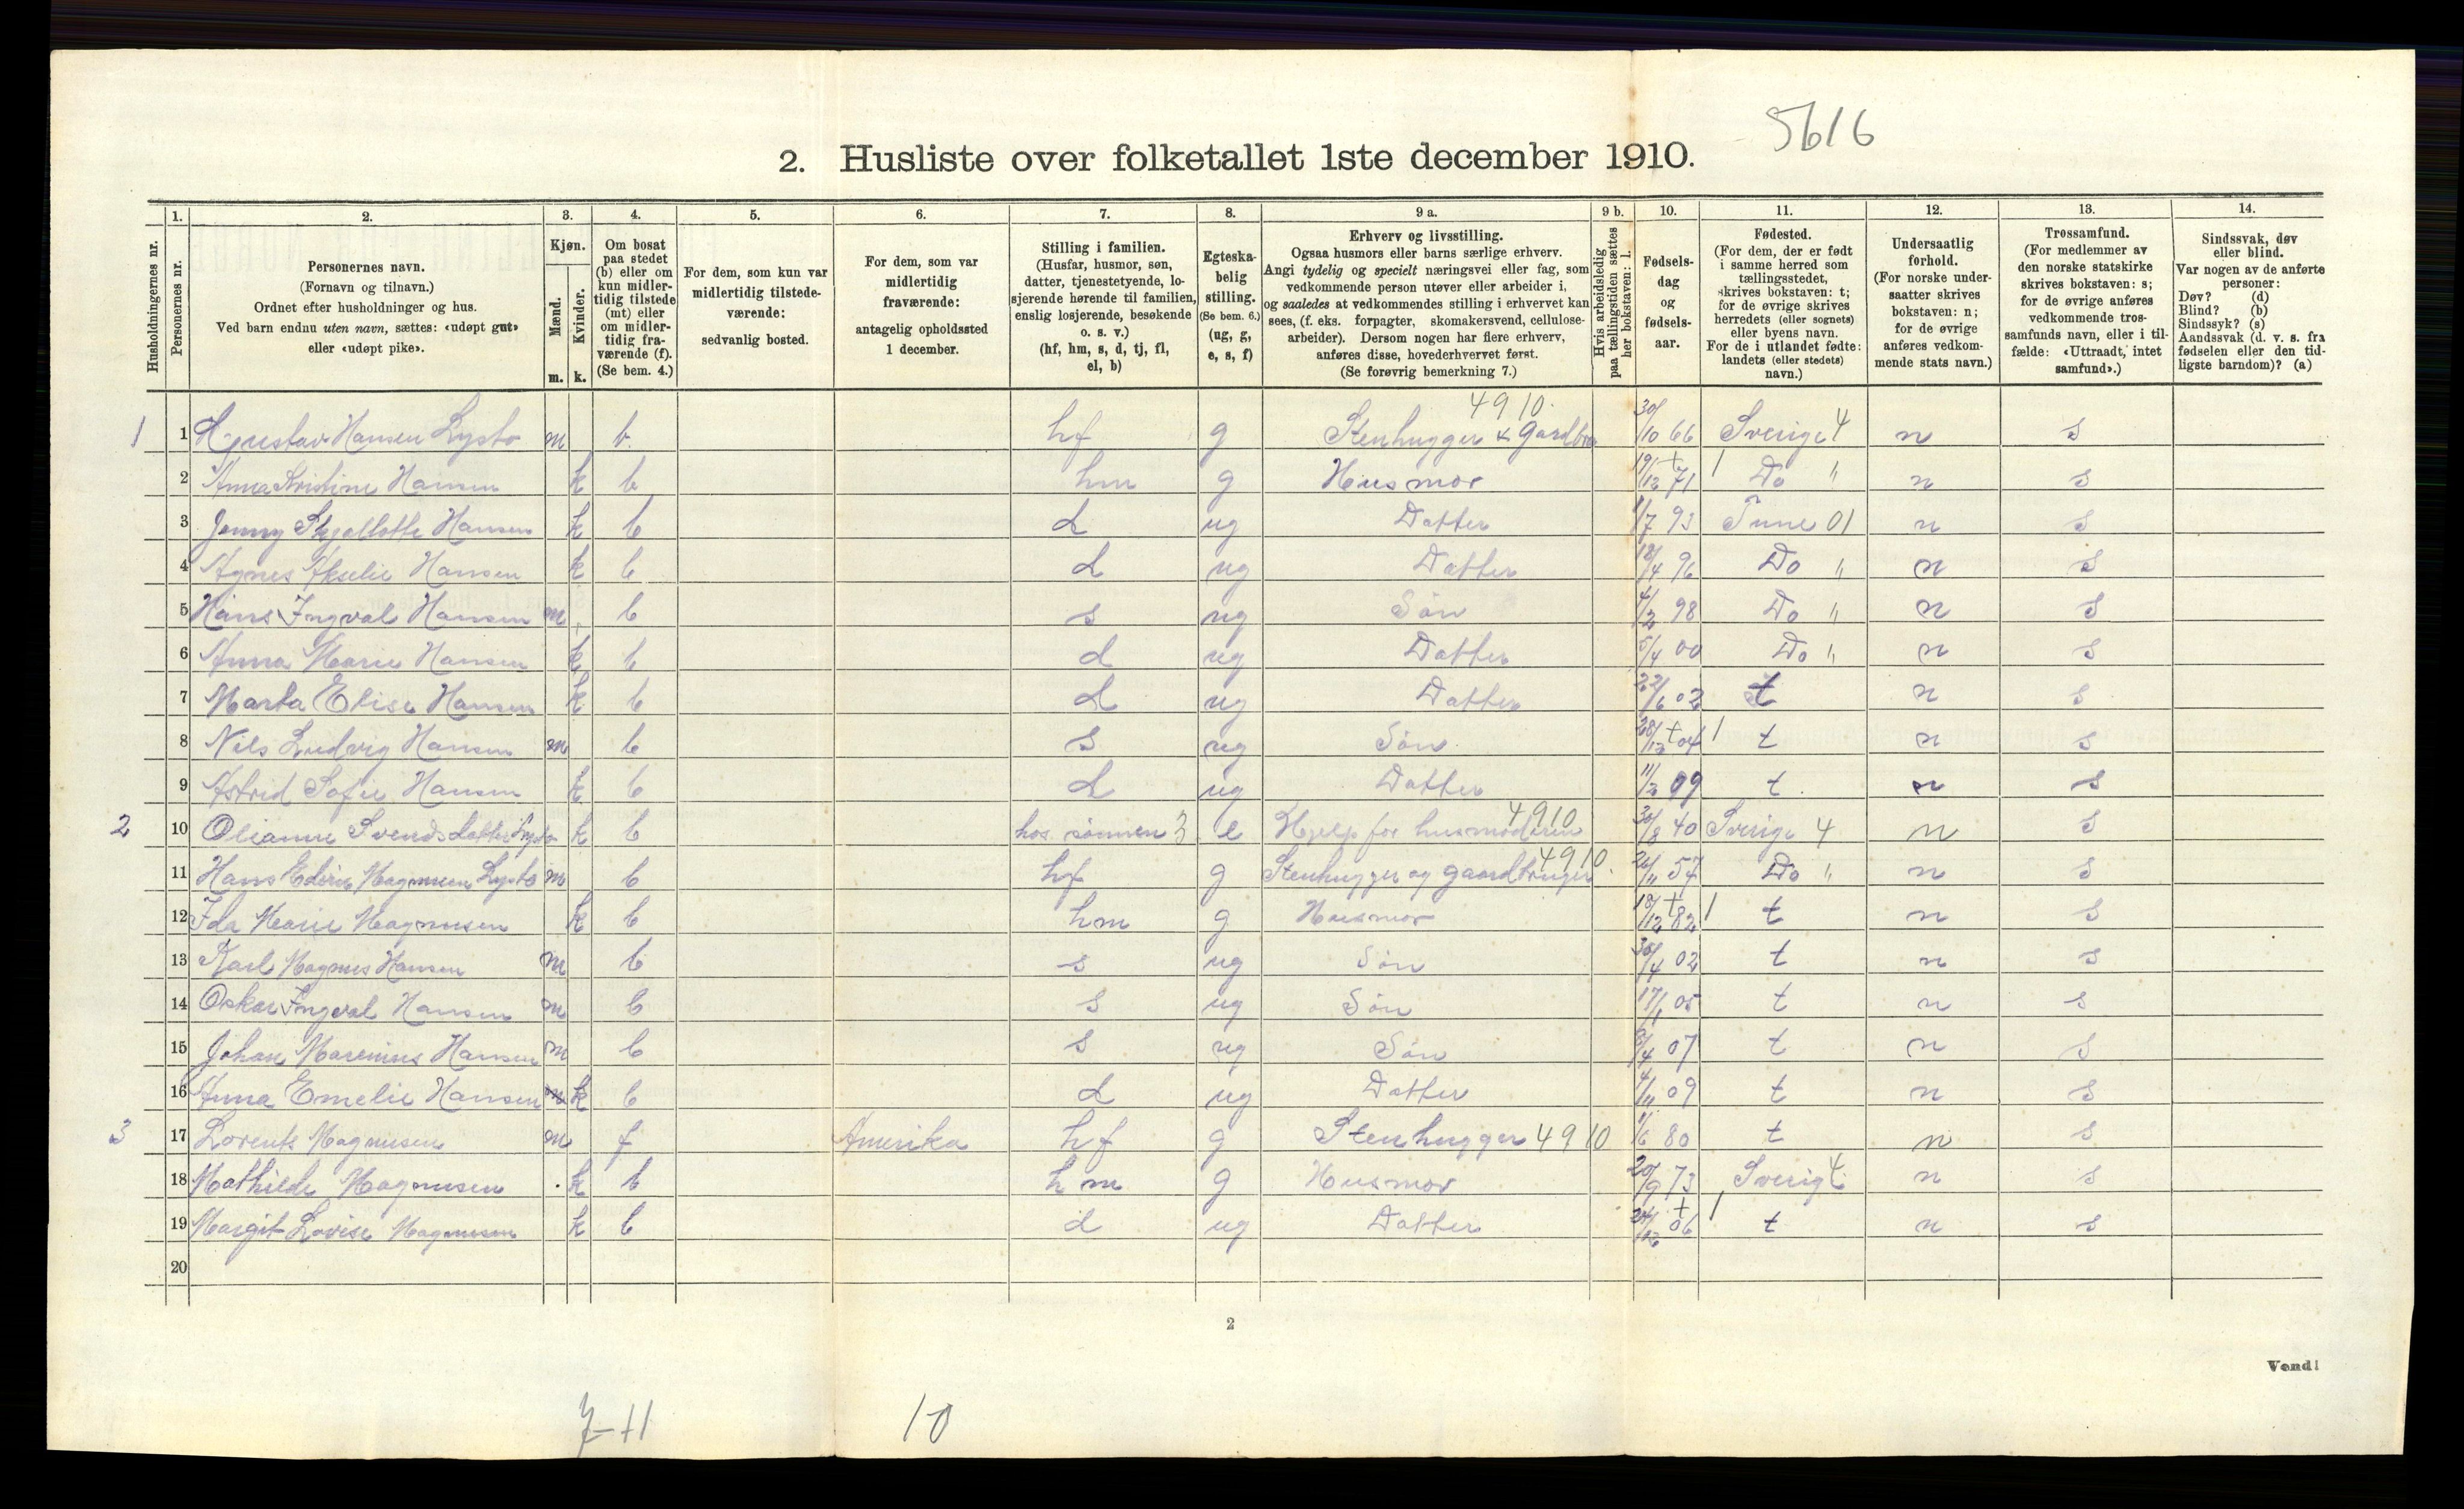 5616
2. Husliste over folketallet 1ste december 1910.
Husholdningernes nr.
1. Personernes nr.
2. Personernes navn.
(Fornavn og tilnavn.)
Ordnet efter husholdninger og hus.
Ved barn endnu uten navn, sættes: «udøpt gut»
eller «udøpt pike».
3. Kjøn.
Mænd. m.
Kvinder. k.
4. Om bosat
paa stedet
(b) eller om
kun midler-
tidig tilstede
(mt) eller
om midler-
tidig fra-
værende (f).
(Se bem. 4.)
5. For dem, som kun var
midlertidig tilstede-
værende:
sedvanlig bosted.
6. For dem, som var
midlertidig
fraværende:
antagelig opholdssted
1 december.
7. Stilling i familien.
(Husfar, husmor, søn,
datter, tjenestetyende, lo-
sjerende hørende til familien,
enslig losjerende, besøkende
o. s. v.)
(hf, hm, s, d, tj, fl,
el, b)
8. Egteska-
belig
stilling.
(Se bem. 6.)
(ug, g,
e, s, f)
9 a. Erhverv og livsstilling.
Ogsaa husmors eller barns særlige erhverv.
Angi tydelig og specielt næringsvei eller fag, som
vedkommende person utøver eller arbeider i,
og saaledes at vedkommendes stilling i erhvervet kan
sees, (f. eks. forpagter, skomakersvend, cellulose-
arbeider). Dersom nogen har flere erhverv,
anføres disse, hovederhvervet først.
(Se forøvrig bemerkning 7.)
9 b. Hvis arbeidsledig
paa tællingstiden sættes
her bokstaven: l.
10. Fødsels-
dag
og
fødsels-
aar.
11. Fødested.
(For dem, der er født
i samme herred som
tællingsstedet,
skrives bokstaven: t;
for de øvrige skrives
herredets (eller sognets)
eller byens navn.
For de i utlandet fødte:
landets (eller stedets)
navn.)
12. Undersaatlig
forhold.
(For norske under-
saatter skrives
bokstaven: n;
for de øvrige
anføres vedkom-
mende stats navn.)
13. Trossamfund.
(For medlemmer av
den norske statskirke
skrives bokstaven: s;
for de øvrige anføres
vedkommende tros-
samfunds navn, eller i til-
fælde: «Uttraadt, intet
samfund».)
14. Sindssvak, døv
eller blind.
Var nogen av de anførte
personer:
Døv? (d)
Blind? (b)
Sindssyk? (s)
Aandssvak (d. v. s. fra
fødselen eller den tid-
ligste barndom)? (a)
4910.
1 1 Gustav Hansen Lysto m b. hf g Stenhugger & 30/10 66 Sverige 4 n s
2 Anna Kristine Hansen k b hm g Husmor 19/12 71 Do " n s
3 Jenny Hansen k b d ug Datter 1/7 93 Tune 01 n s
4 Agnes Akselie Hansen k b d ug Datter 18/4 96 Do " n s
5 Hans Ingval Hansen m b s ug Søn 4/2 98 Do " n s
6 Anna Marie Hansen k b d ug Datter 5/4 00 Do " n s
7 Marta Elise Hansen k b d ug Datter 22/6 02 t n s
8 Nils Ludvig Hansen m b s ug Søn 28/12 04 t n s
9 Astrid Sofie Hansen k b d ug Datter 11/2 09 t. n s
2 10 Olianne Svends datter Lysto k b hos sønnen 3 e Hjelp for husmoderen 4910 30/8 40 Sverige 4 n s
11 Hans Magnusen Lysto m b hf g Stenhugger og gaardbruger 4910. 26/11 57 Do " n s
12 Ida Marie Magnusen k b hm g Husmor 18/12 82 t n s
13 Karl Magnus Hansen m b s ug Søn 30/4 02 t n s
14 Oskar Ingval Hansen m b s ug Søn 17/1 05 t n s
15 Johan Marenius Hansen m b s ug Søn 8/4 07 t n s
16 Anna Emelie Hansen k b d ug Datter 4/11 09 t n s
3 17 Lorents Magnusen m f Amerika hf g Stenhugger 4910 1/6 80 t n s
18 Mathilde Magnusen k b hm g Husmor 20/9 73 Sverige 4 n s
19 Margit Lovise Magnusen k b d ug Datter 24/12 06 t n s
20
2
Vend!
7-11
10